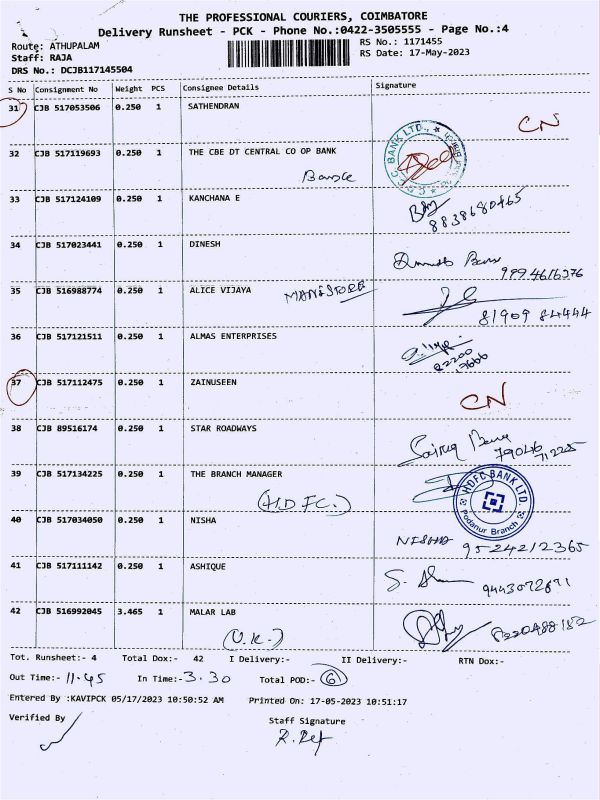 THE PROFESSIONAL COURIERS, COIMBATORE
Delivery Runsheet - PCK - Phone No.:0422-3505555 - Page No.:4
Route: ATHUPALAM RS No.: 1171455
Staff: RAJA RS Date: 17-May-2023
DRS No.: DCJB117145504
S No Consignment No Weight PCS Consignee Details Signature
31 CJB 517053506 0.250 1 SATHENDRAN CN
32 CJB 517119693 0.250 1 THE CBE DT CENTRAL CO OP BANK
33 CJB 517124109 0.250 1 KANCHANA E
34 CJB 517023441 0.250 1 DINESH 9994616276
35 CJB 516988774 0.250 1 ALICE VIJAYA 81909 84444
36 CJB 517121511 0.250 1 ALMAS ENTERPRISES
37 CJB 517112475 0.250 1 ZAINUSEEN CN
38 CJB 89516174 0.250 1 STAR ROADWAYS 79046 71225
39 CJB 517134225 0.250 1 THE BRANCH MANAGER
(HDFC.) HDFC BANK LTD. Podanur Branch
40 CJB 517034050 0.250 1 NISHA NISHA 9524212365
41 CJB 517111142 0.250 1 ASHIQUE
42 CJB 516992045 3.465 1 MALAR LAB
(U.K.)
Tot. Runsheet:- 4 Total Dox:- 42 I Delivery:- II Delivery:- RTN Dox:-
Out Time:- 11.45 In Time:- 3.30 Total POD:- 6
Entered By :KAVIPCK 05/17/2023 10:50:52 AM Printed On: 17-05-2023 10:51:17
Verified By Staff Signature